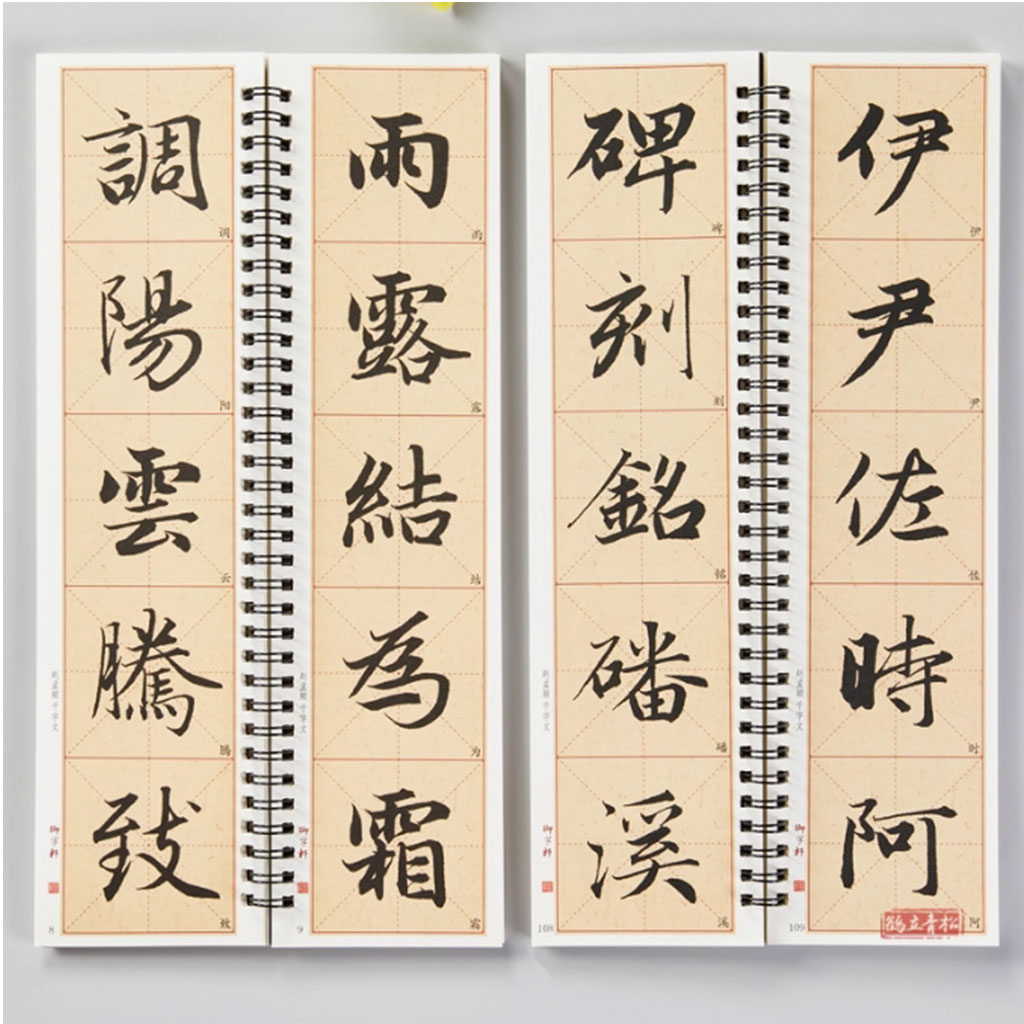 調
陽
雲
騰
致
调
阳
云
腾
致
赵孟頫 千字文
御字轩
8
雨
露
結
為
霜
雨
露
结
为
霜
赵孟頫 千字文
御字轩
9
碑
刻
銘
磻
溪
碑
刻
铭
磻
溪
赵孟頫 千字文
御字轩
108
伊
尹
佐
時
阿
伊
尹
佐
时
阿
赵孟頫 千字文
御字轩
109
鹤立青松